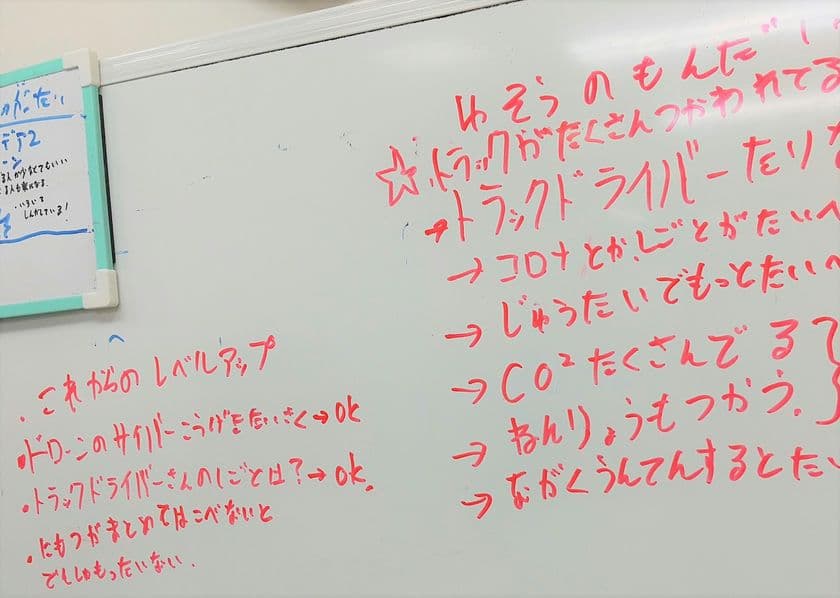 がたい
デア2
ーン
ゆそうのもんだい
☆トラックがたくさんつかわれてる
→トラックドライバーたりな
→コロナとか、しごとがたいへ
→じゅうたいでもっとたいへ
→CO²たくさんでる
→ねんりょうもつかう。
→ながくうんてんするとたい
・これからのレベルアップ
・ドローンのサイバーこうげきたいさく→OK
・トラックドライバーさんのしごとは?→OK.
・にもつがまとめてはこべないと
でんしゃもったいない.